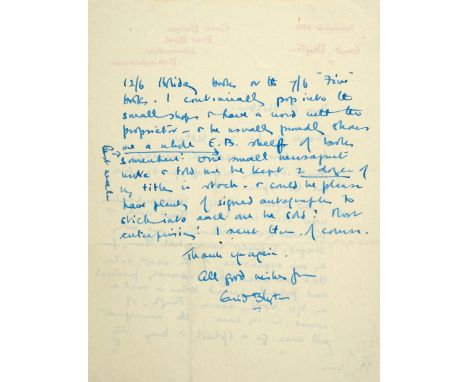 12/6 Holiday books or the 7/6 "Five"
books. I continually pop into the
small shops & have a word with the
proprietor - & he usually proudly shows
me a whole E.B. shelf of books
somewhere! One small newsagent
wrote & told me he kept 2 dozen of
my titles in stock - & could he please
have plenty of signed autographs to
stick into each one he sold! Most
enterprising! I sent them, of course.
Thank you again.
All good wishes from
Enid Blyton